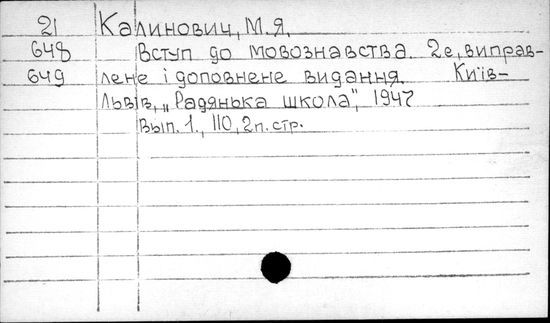 21 Калинович, М.Я.
648 Вступ до мовознавства. 2е, виправ-
649 лене і доповнене видання. Київ-
Львів, „Радянька школа", 1947
Вып. 1., 110, 2п. стр.